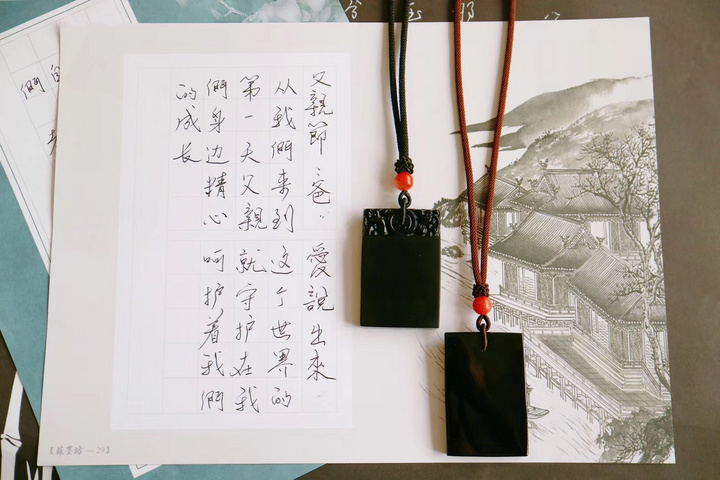 父親節〝爸〞愛說出來
从我們来到这个世界的
第一天父親就守护在我
們身边精心呵护着我們
的成长
們